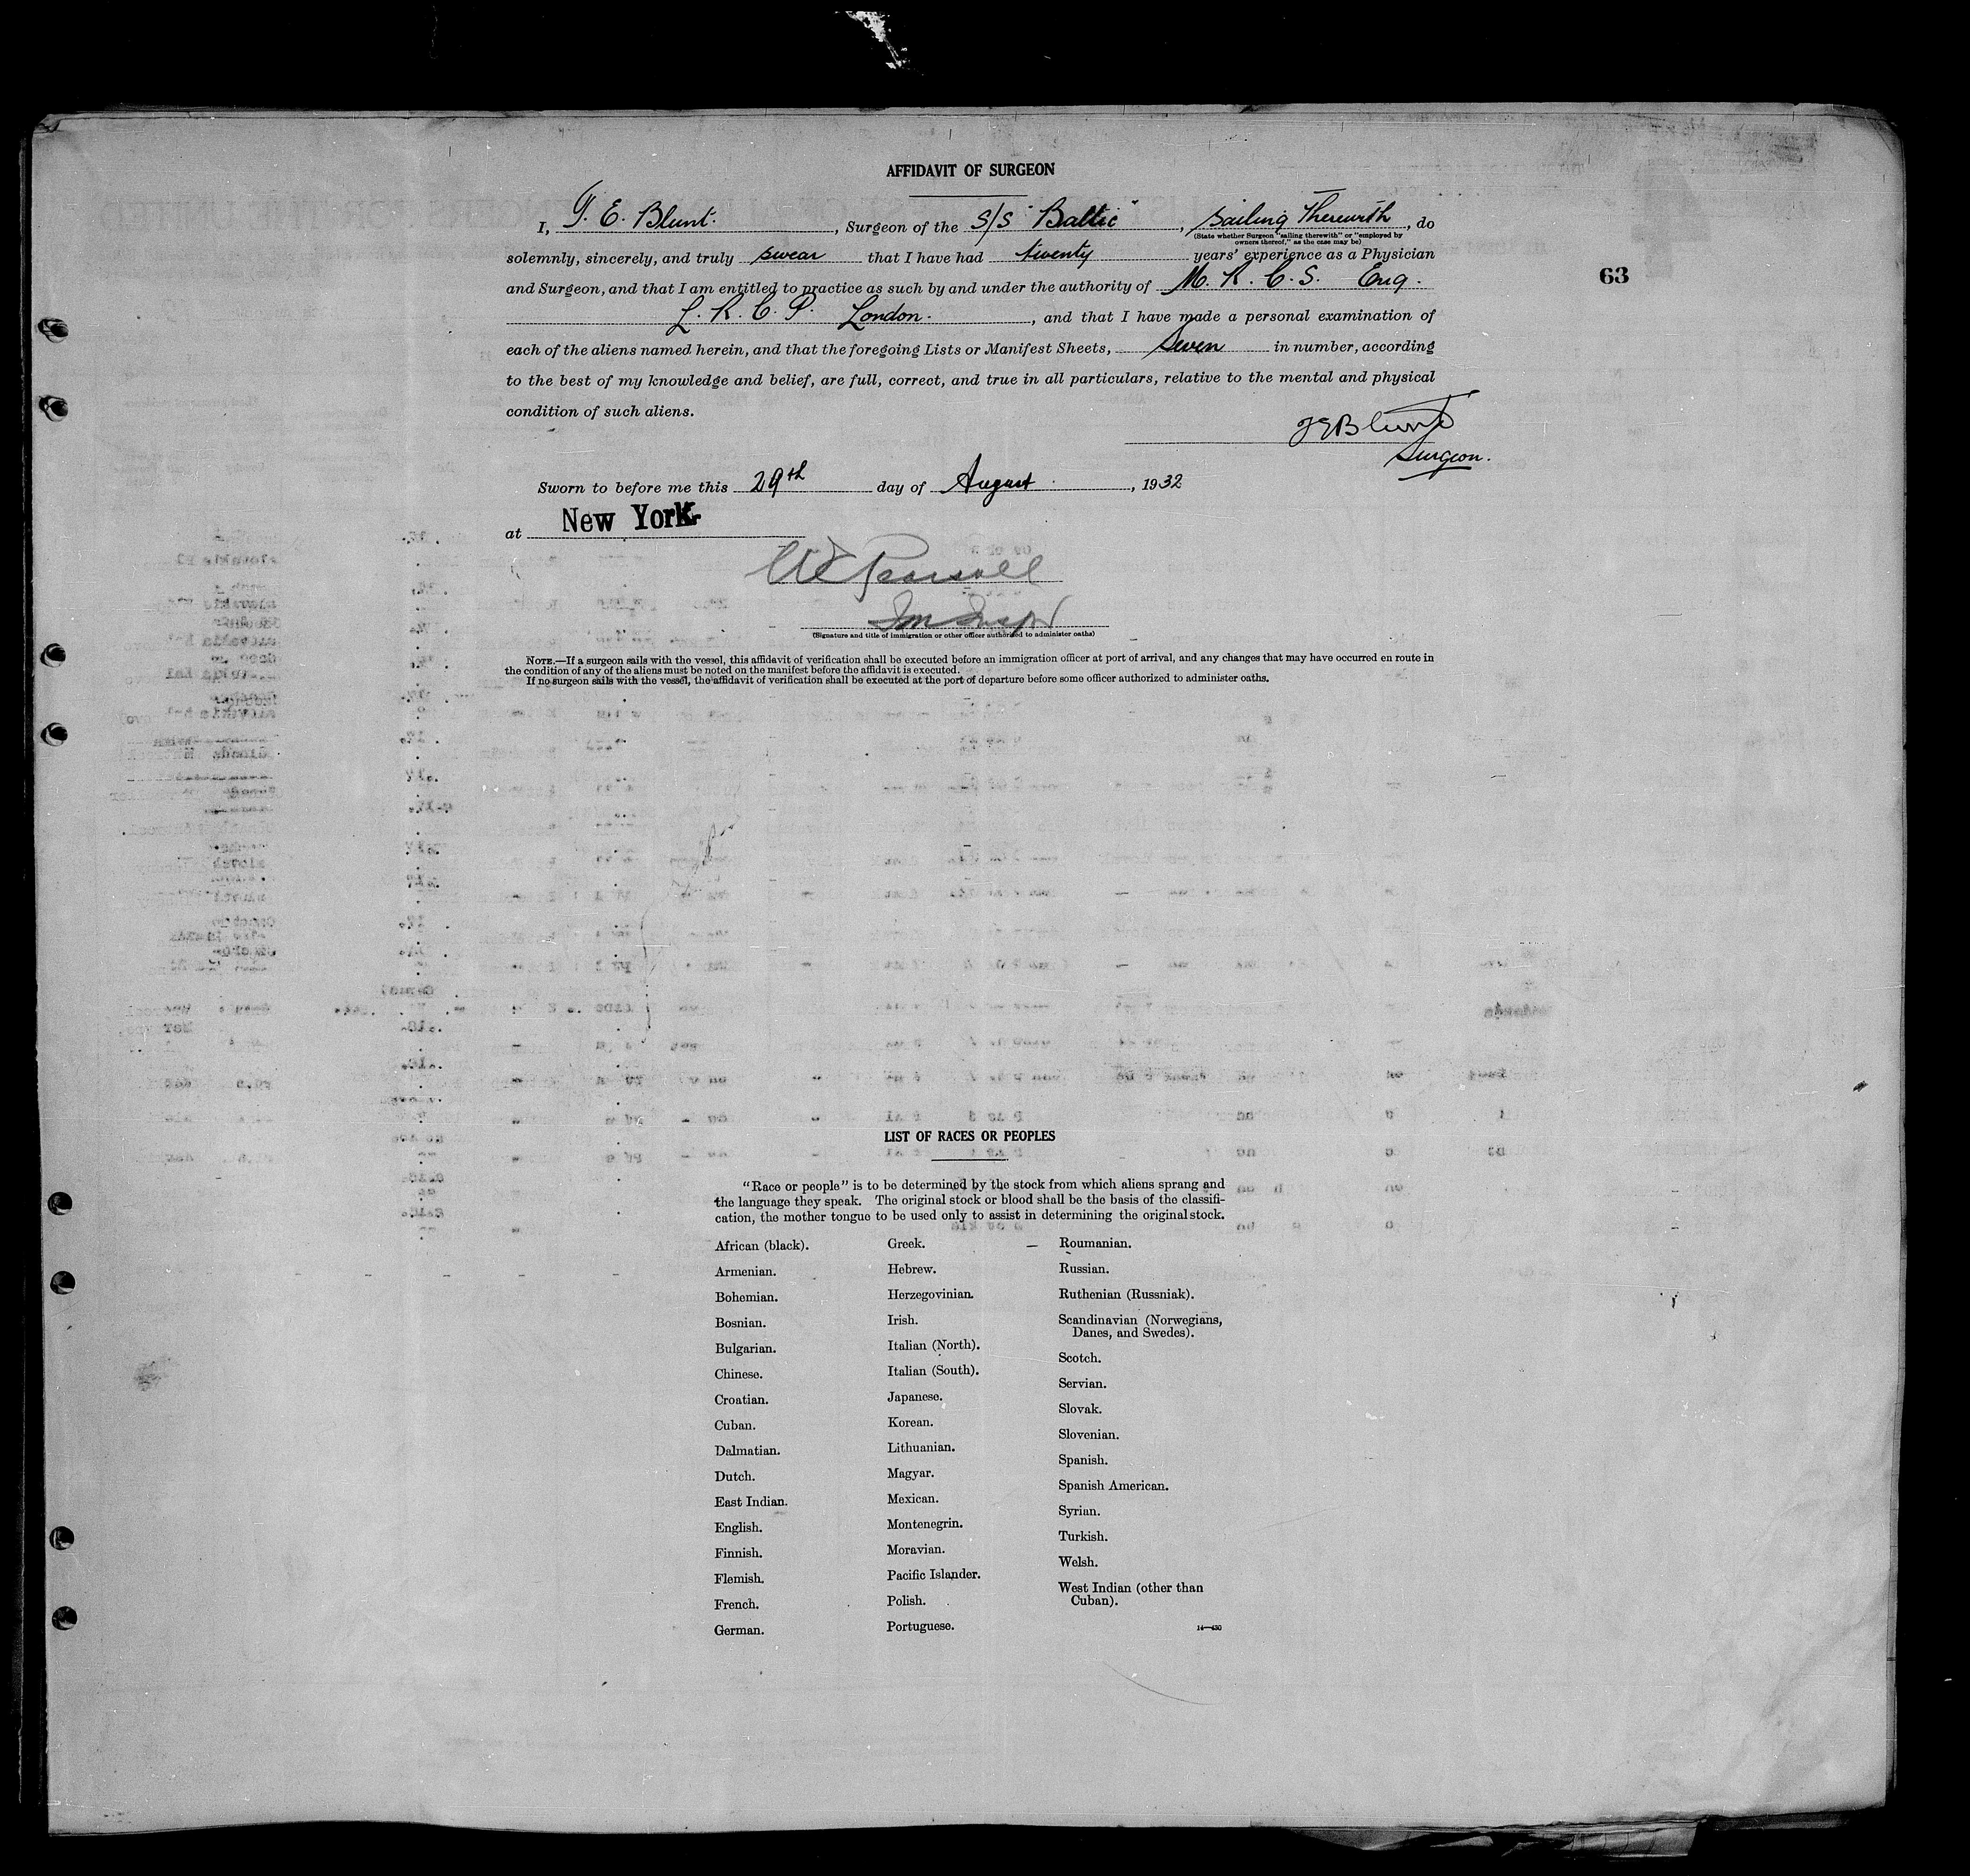 AFFIDAVIT OF SURGEON
I, T. E. Blunt. , Surgeon of the S/S "Baltic" , Sailing Therewith , do
(State whether Surgeon "sailing therewith" or "employed by
owners thereof," as the case may be)
solemnly, sincerely, and truly swear that I have had twenty years' experience as a Physician
63
and Surgeon, and that I am entitled to practice as such by and under the authority of M. R. C. S. Eng.
L. R. C. P. London. , and that I have made a personal examination of
each of the aliens named herein, and that the foregoing Lists or Manifest Sheets, Seven in number, according
to the best of my knowledge and belief, are full, correct, and true in all particulars, relative to the mental and physical
condition of such aliens.
TEBlunt
Surgeon.
Sworn to before me this 29th day of August , 1932
at New York.
Im Inspr
(Signature and title of immigration or other officer authorized to administer oaths)
NOTE.—If a surgeon sails with the vessel, this affidavit of verification shall be executed before an immigration officer at port of arrival, and any changes that may have occurred en route in
the condition of any of the aliens must be noted on the manifest before the affidavit is executed.
If no surgeon sails with the vessel, the affidavit of verification shall be executed at the port of departure before some officer authorized to administer oaths.
LIST OF RACES OR PEOPLES
"Race or people" is to be determined by the stock from which aliens sprang and
the language they speak. The original stock or blood shall be the basis of the classifi-
cation, the mother tongue to be used only to assist in determining the original stock.
African (black).
Armenian.
Bohemian.
Bosnian.
Bulgarian.
Chinese.
Croatian.
Cuban.
Dalmatian.
Dutch.
East Indian.
English.
Finnish.
Flemish.
French.
German.
Greek.
Hebrew.
Herzegovinian.
Irish.
Italian (North).
Italian (South).
Japanese.
Korean.
Lithuanian.
Magyar.
Mexican.
Montenegrin.
Moravian.
Pacific Islander.
Polish.
Portuguese.
Roumanian.
Russian.
Ruthenian (Russniak).
Scandinavian (Norwegians,
Danes, and Swedes).
Scotch.
Servian.
Slovak.
Slovenian.
Spanish.
Spanish American.
Syrian.
Turkish.
Welsh.
West Indian (other than
Cuban).
14—430